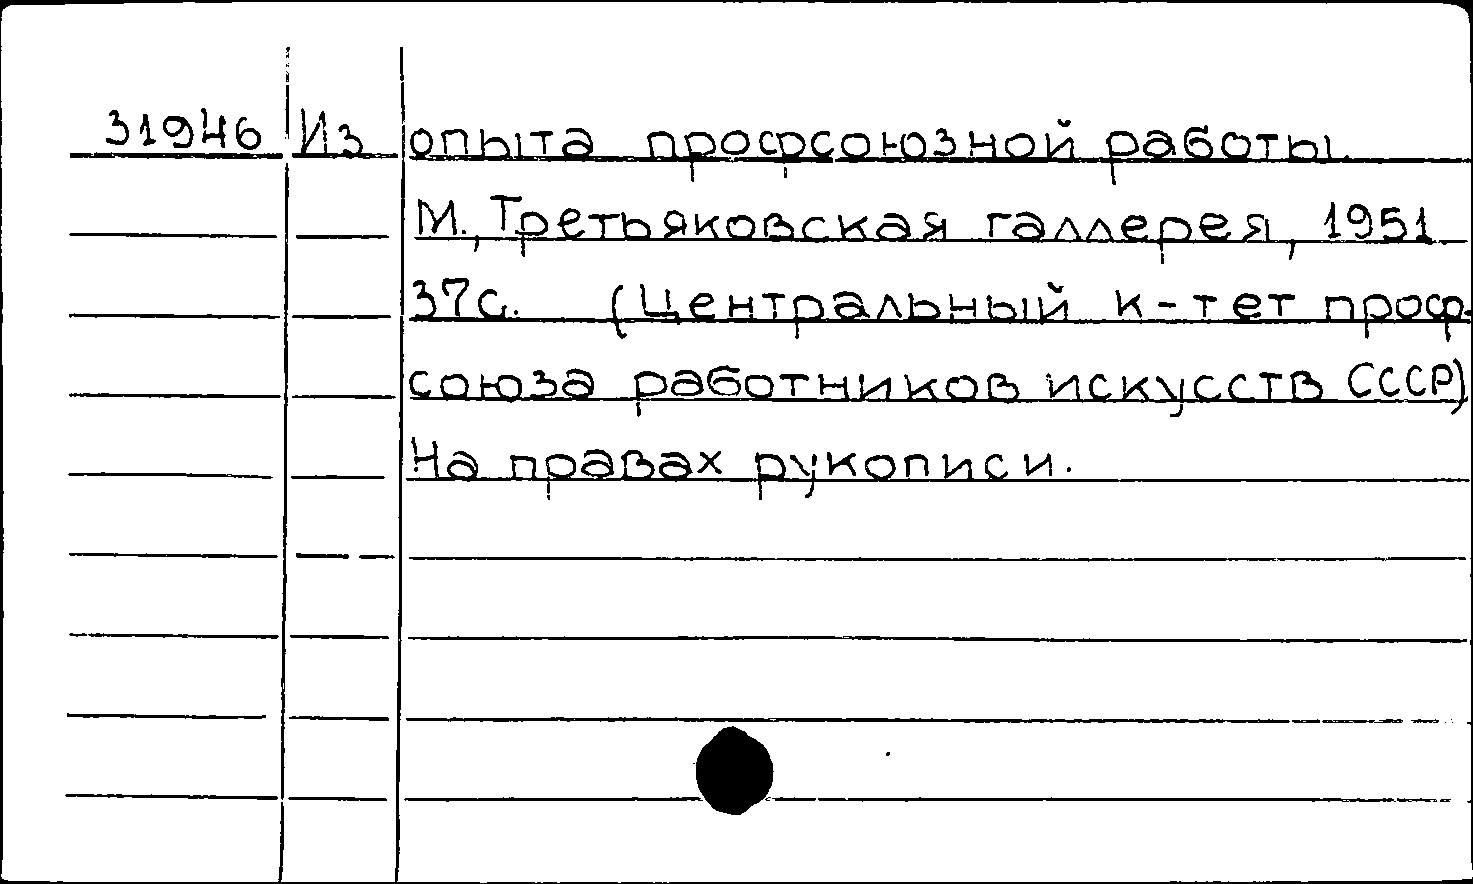 31946 Из опыта профсоюзной работы.
М., Третьяковская галлерея, 1951.
37с. (Центральный к-тет проф-
союза работников искусств СССР)
На правах рукописи.